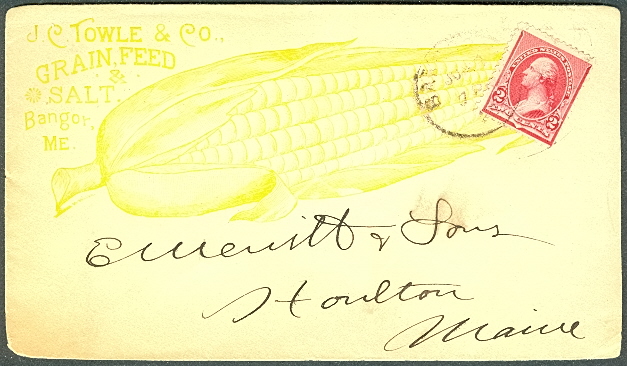 J. C. TOWLE & CO.,
GRAIN, FEED
&
SALT.
Bangor,
ME.
UNITED STATES POSTAGE
2 2
TWO CENTS
E Merritt & Sons
Houlton
Maine